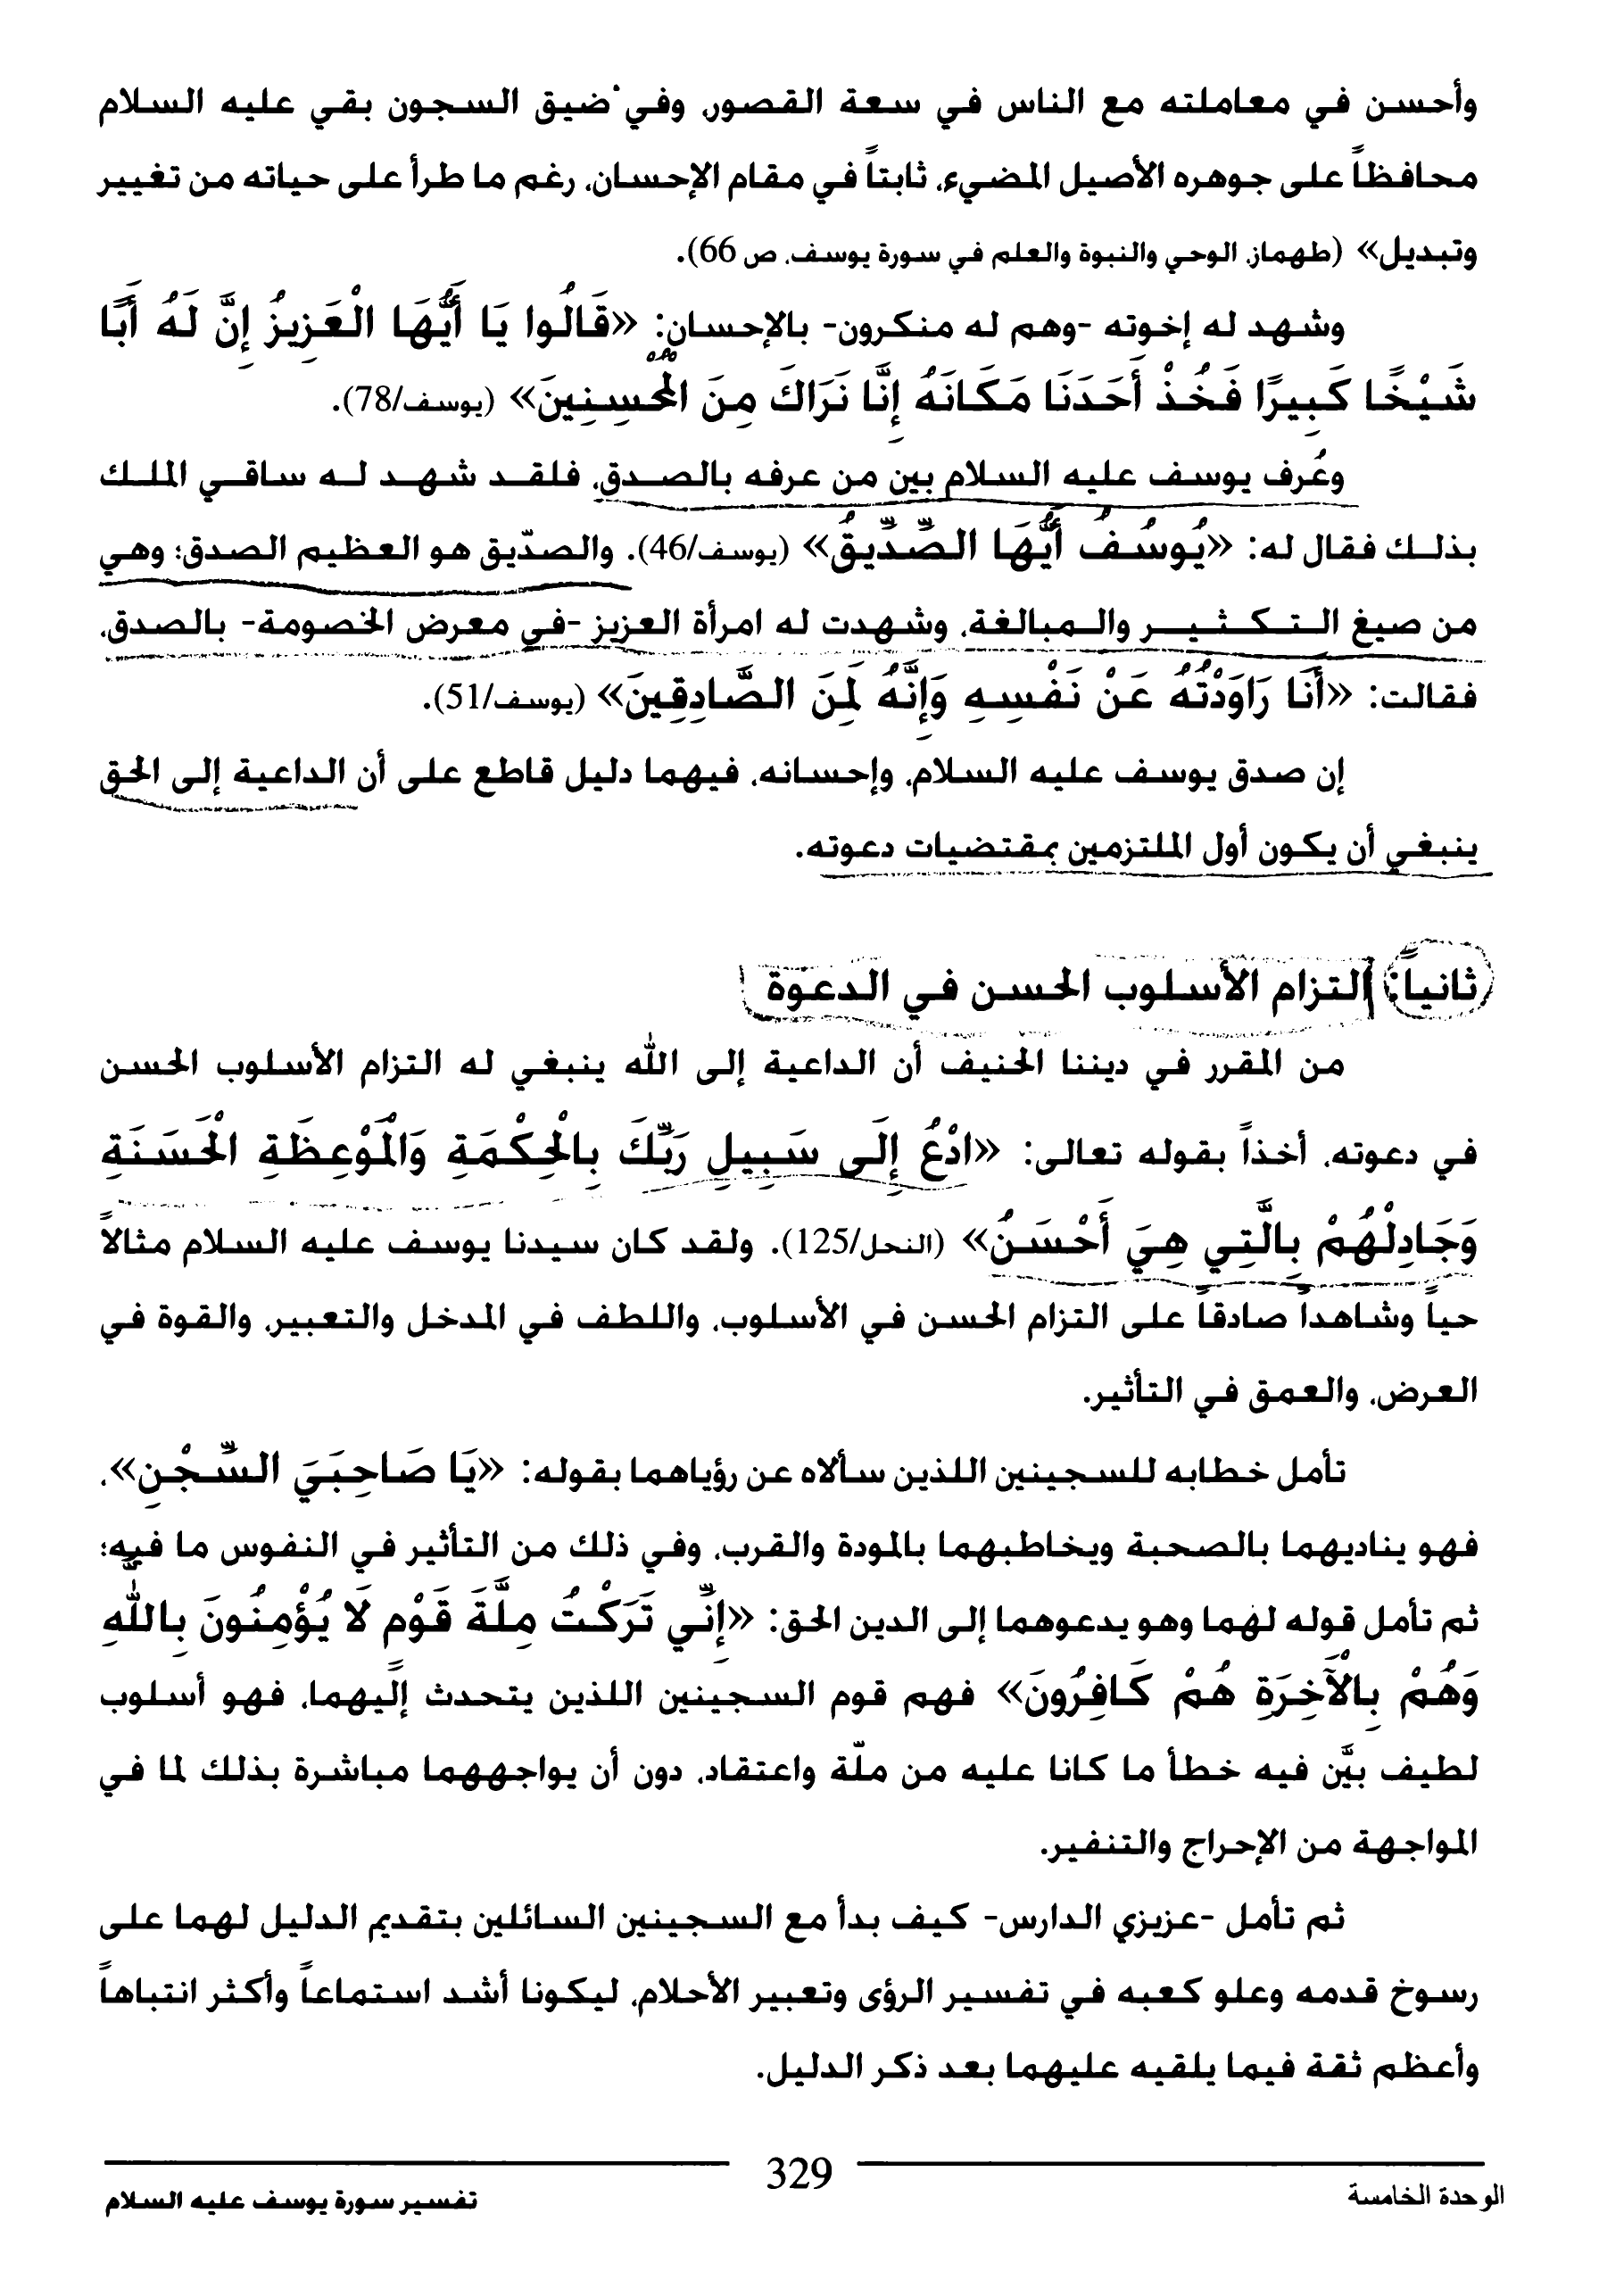 وأحسن في معاملته مع الناس في سعة القصور، وفي ضيق السجون بقي عليه السلام
محافظاً على جوهره الأصيل المضيء، ثابتاً في مقام الإحسان، رغم ما طرأ على حياته من تغيير
وتبديل» (طهماز، الوحي والنبوة والعلم في سورة يوسف، ص 66).
وشهد له إخوته -وهم له منكرون- بالإحسان: «قَالُوا يَا أَيُّهَا الْعَزِيزُ إِنَّ لَهُ أَبًا
شَيْخًا كَبِيرًا فَخُذْ أَحَدَنَا مَكَانَهُ إِنَّا نَرَاكَ مِنَ الْمُحْسِنِينَ» (يوسف/78).
وعُرف يوسف عليه السلام بين من عرفه بالصدق، فلقد شهد له ساقي الملك
بذلك فقال له: «يُوسُفُ أَيُّهَا الصِّدِّيقُ» (يوسف/46). والصدّيق هو العظيم الصدق؛ وهي
من صيغ التكثير والمبالغة، وشهدت له امرأة العزيز -في معرض الخصومة- بالصدق،
فقالت: «أَنَا رَاوَدْتُهُ عَنْ نَفْسِهِ وَإِنَّهُ لَمِنَ الصَّادِقِينَ» (يوسف/51).
إن صدق يوسف عليه السلام، وإحسانه، فيهما دليل قاطع على أن الداعية إلى الحق
ينبغي أن يكون أول الملتزمين بمقتضيات دعوته.
ثانياً: التزام الأسلوب الحسن في الدعوة
من المقرر في ديننا الحنيف أن الداعية إلى الله ينبغي له التزام الأسلوب الحسن
في دعوته، أخذاً بقوله تعالى: «ادْعُ إِلَى سَبِيلِ رَبِّكَ بِالْحِكْمَةِ وَالْمَوْعِظَةِ الْحَسَنَةِ
وَجَادِلْهُمْ بِالَّتِي هِيَ أَحْسَنُ» (النحل/125). ولقد كان سيدنا يوسف عليه السلام مثالاً
حياً وشاهداً صادقاً على التزام الحسن في الأسلوب، واللطف في المدخل والتعبير، والقوة في
العرض، والعمق في التأثير.
تأمل خطابه للسجينين اللذين سألاه عن رؤياهما بقوله: «يَا صَاحِبَيَ السِّجْنِ»،
فهو يناديهما بالصحبة ويخاطبهما بالمودة والقرب، وفي ذلك من التأثير في النفوس ما فيه؛
ثم تأمل قوله لهما وهو يدعوهما إلى الدين الحق: «إِنِّي تَرَكْتُ مِلَّةَ قَوْمٍ لَا يُؤْمِنُونَ بِاللَّهِ
وَهُمْ بِالْآخِرَةِ هُمْ كَافِرُونَ» فهم قوم السجينين اللذين يتحدث إليهما، فهو أسلوب
لطيف بيَّن فيه خطأ ما كانا عليه من ملّة واعتقاد، دون أن يواجههما مباشرة بذلك لما في
المواجهة من الإحراج والتنفير.
ثم تأمل -عزيزي الدارس- كيف بدأ مع السجينين السائلين بتقديم الدليل لهما على
رسوخ قدمه وعلو كعبه في تفسير الرؤى وتعبير الأحلام، ليكونا أشد استماعاً وأكثر انتباهاً
وأعظم ثقة فيما يلقيه عليهما بعد ذكر الدليل.
الوحدة الخامسة
329
تفسير سورة يوسف عليه السلام